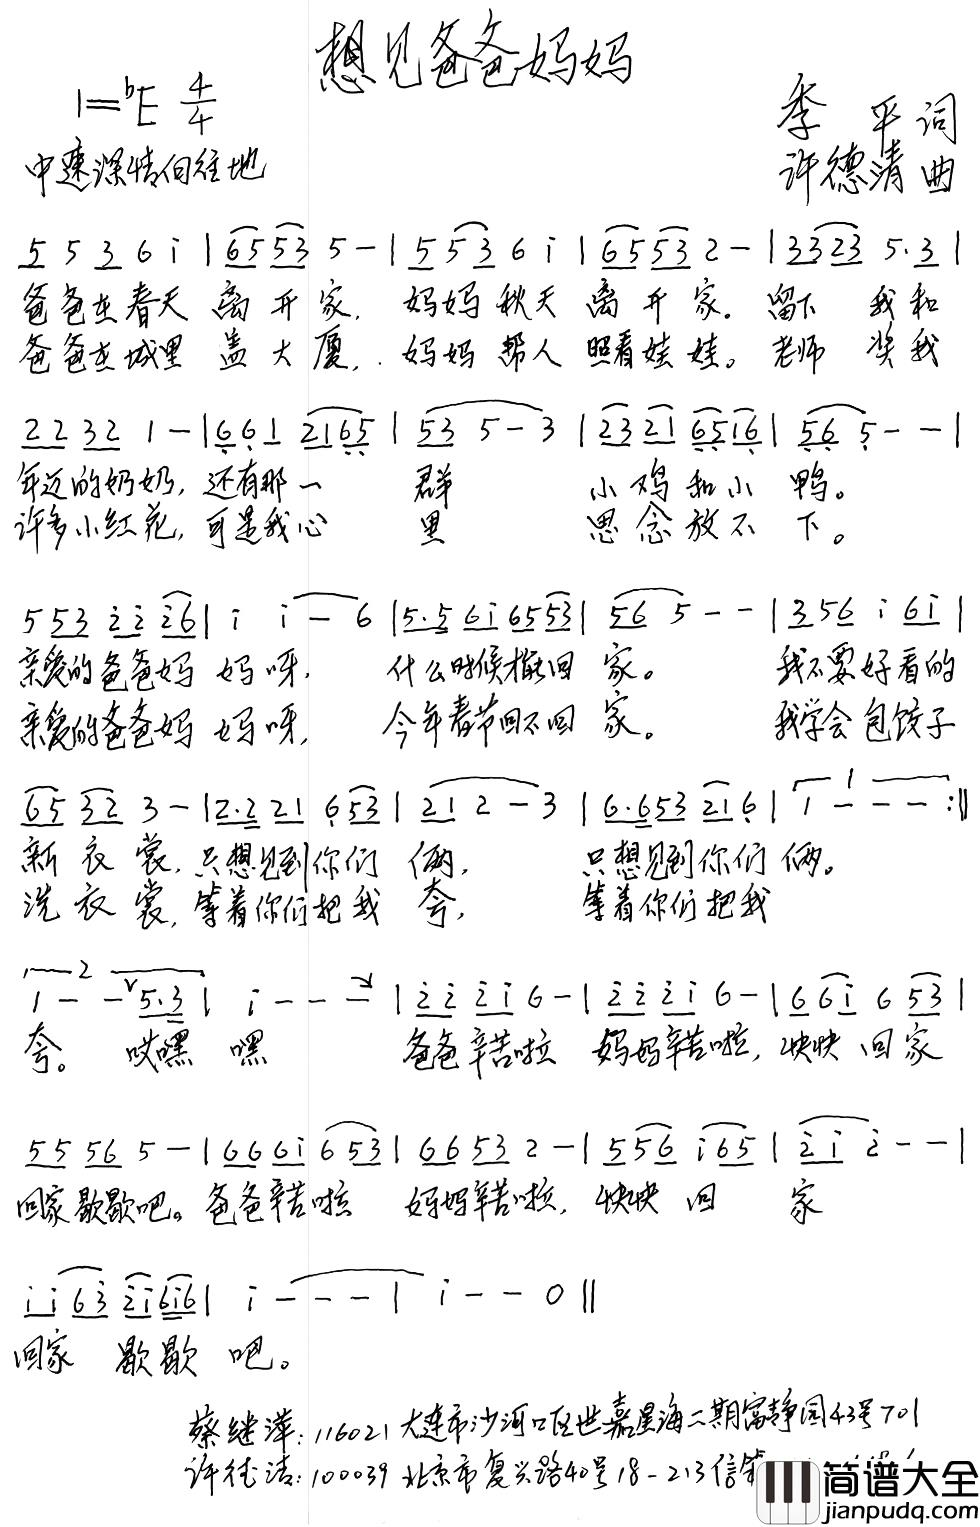 想见爸爸妈妈
1=♭E 4/4
季 平 词
中速深情向往地
许德清 曲
5 5 3 6 i | 6 5 5 3 5 - | 5 5 3 6 i | 6 5 5 3 2 - | 3 3 2 3 5 . 3 |
爸爸在春天 离开家, 妈妈秋天 离开家. 留下 我和
爸爸在城里 盖大厦, 妈妈帮人 照看娃娃。老师 奖我
2 2 3 2 1 - | 6 6 1 2 1 6 5 | 5 3 5 - 3 | 2 3 2 1 6 5 1 6 | 5 6 5 - - |
年迈的奶奶, 还有那一 群 小鸡和小 鸭。
许多小红花, 可是我心 里 思念放不 下。
5 5 3 i i i 6 | i i - 6 | 5 . 5 6 i 6 5 5 3 | 5 6 5 - - | 3 5 6 i 6 i |
亲爱的爸爸妈 妈呀, 什么时候才能回 家。 我不要好看的
亲爱的爸爸妈 妈呀, 今年春节回不回 家。 我学会包饺子
6 5 3 2 3 - | 2 . 2 2 1 6 5 3 | 2 1 2 - 3 | 6 . 6 5 3 2 1 6 | 1 - - - :||
新衣裳, 只想见到你们 俩, 只想见到你们 俩。
洗衣裳, 等着你们把我 夸, 等着你们把我
1 - - 5 . 3 | i - - - | 2 2 2 i 6 - | 2 2 2 i 6 - | 6 6 i 6 5 3 |
夸。 哎嘿 嘿 爸爸辛苦啦 妈妈辛苦啦, 快快回家
5 5 5 6 5 - | 6 6 6 i 6 5 3 | 6 6 5 3 2 - | 5 5 6 i 6 5 | 2 i 2 - - |
回家歇歇吧。爸爸辛苦啦 妈妈辛苦啦, 快快 回 家
i i 6 3 2 i 6 i 6 | i - - - | i - - 0 ||
回家 歇歇 吧。
蔡继萍: 116021 大连市沙河口区世嘉星海二期富静园43号701
许德清: 100039 北京市复兴路40号18-213信箱
简谱大全
jianpudq.com